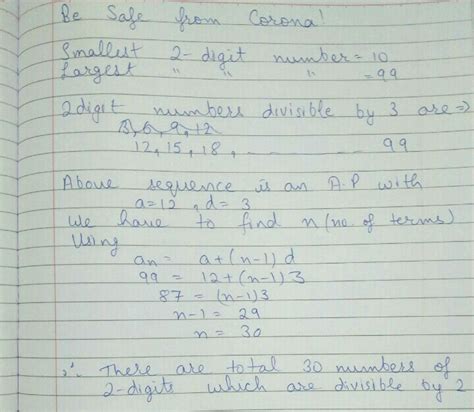 Be Safe from Corona!
Smallest 2-digit number = 10
Largest " " " = 99
2digit numbers divisible by 3 are ⇒
3, 6, 9, 12
12, 15, 18, 99
Above sequence is an A.P with
a=12, d=3
We have to find n (no. of terms)
Using
an = a+(n-1) d
99 = 12+(n-1)3
87 = (n-1)3
n-1 = 29
n = 30
∴ There are total 30 numbers of
2-digits which are divisible by 2